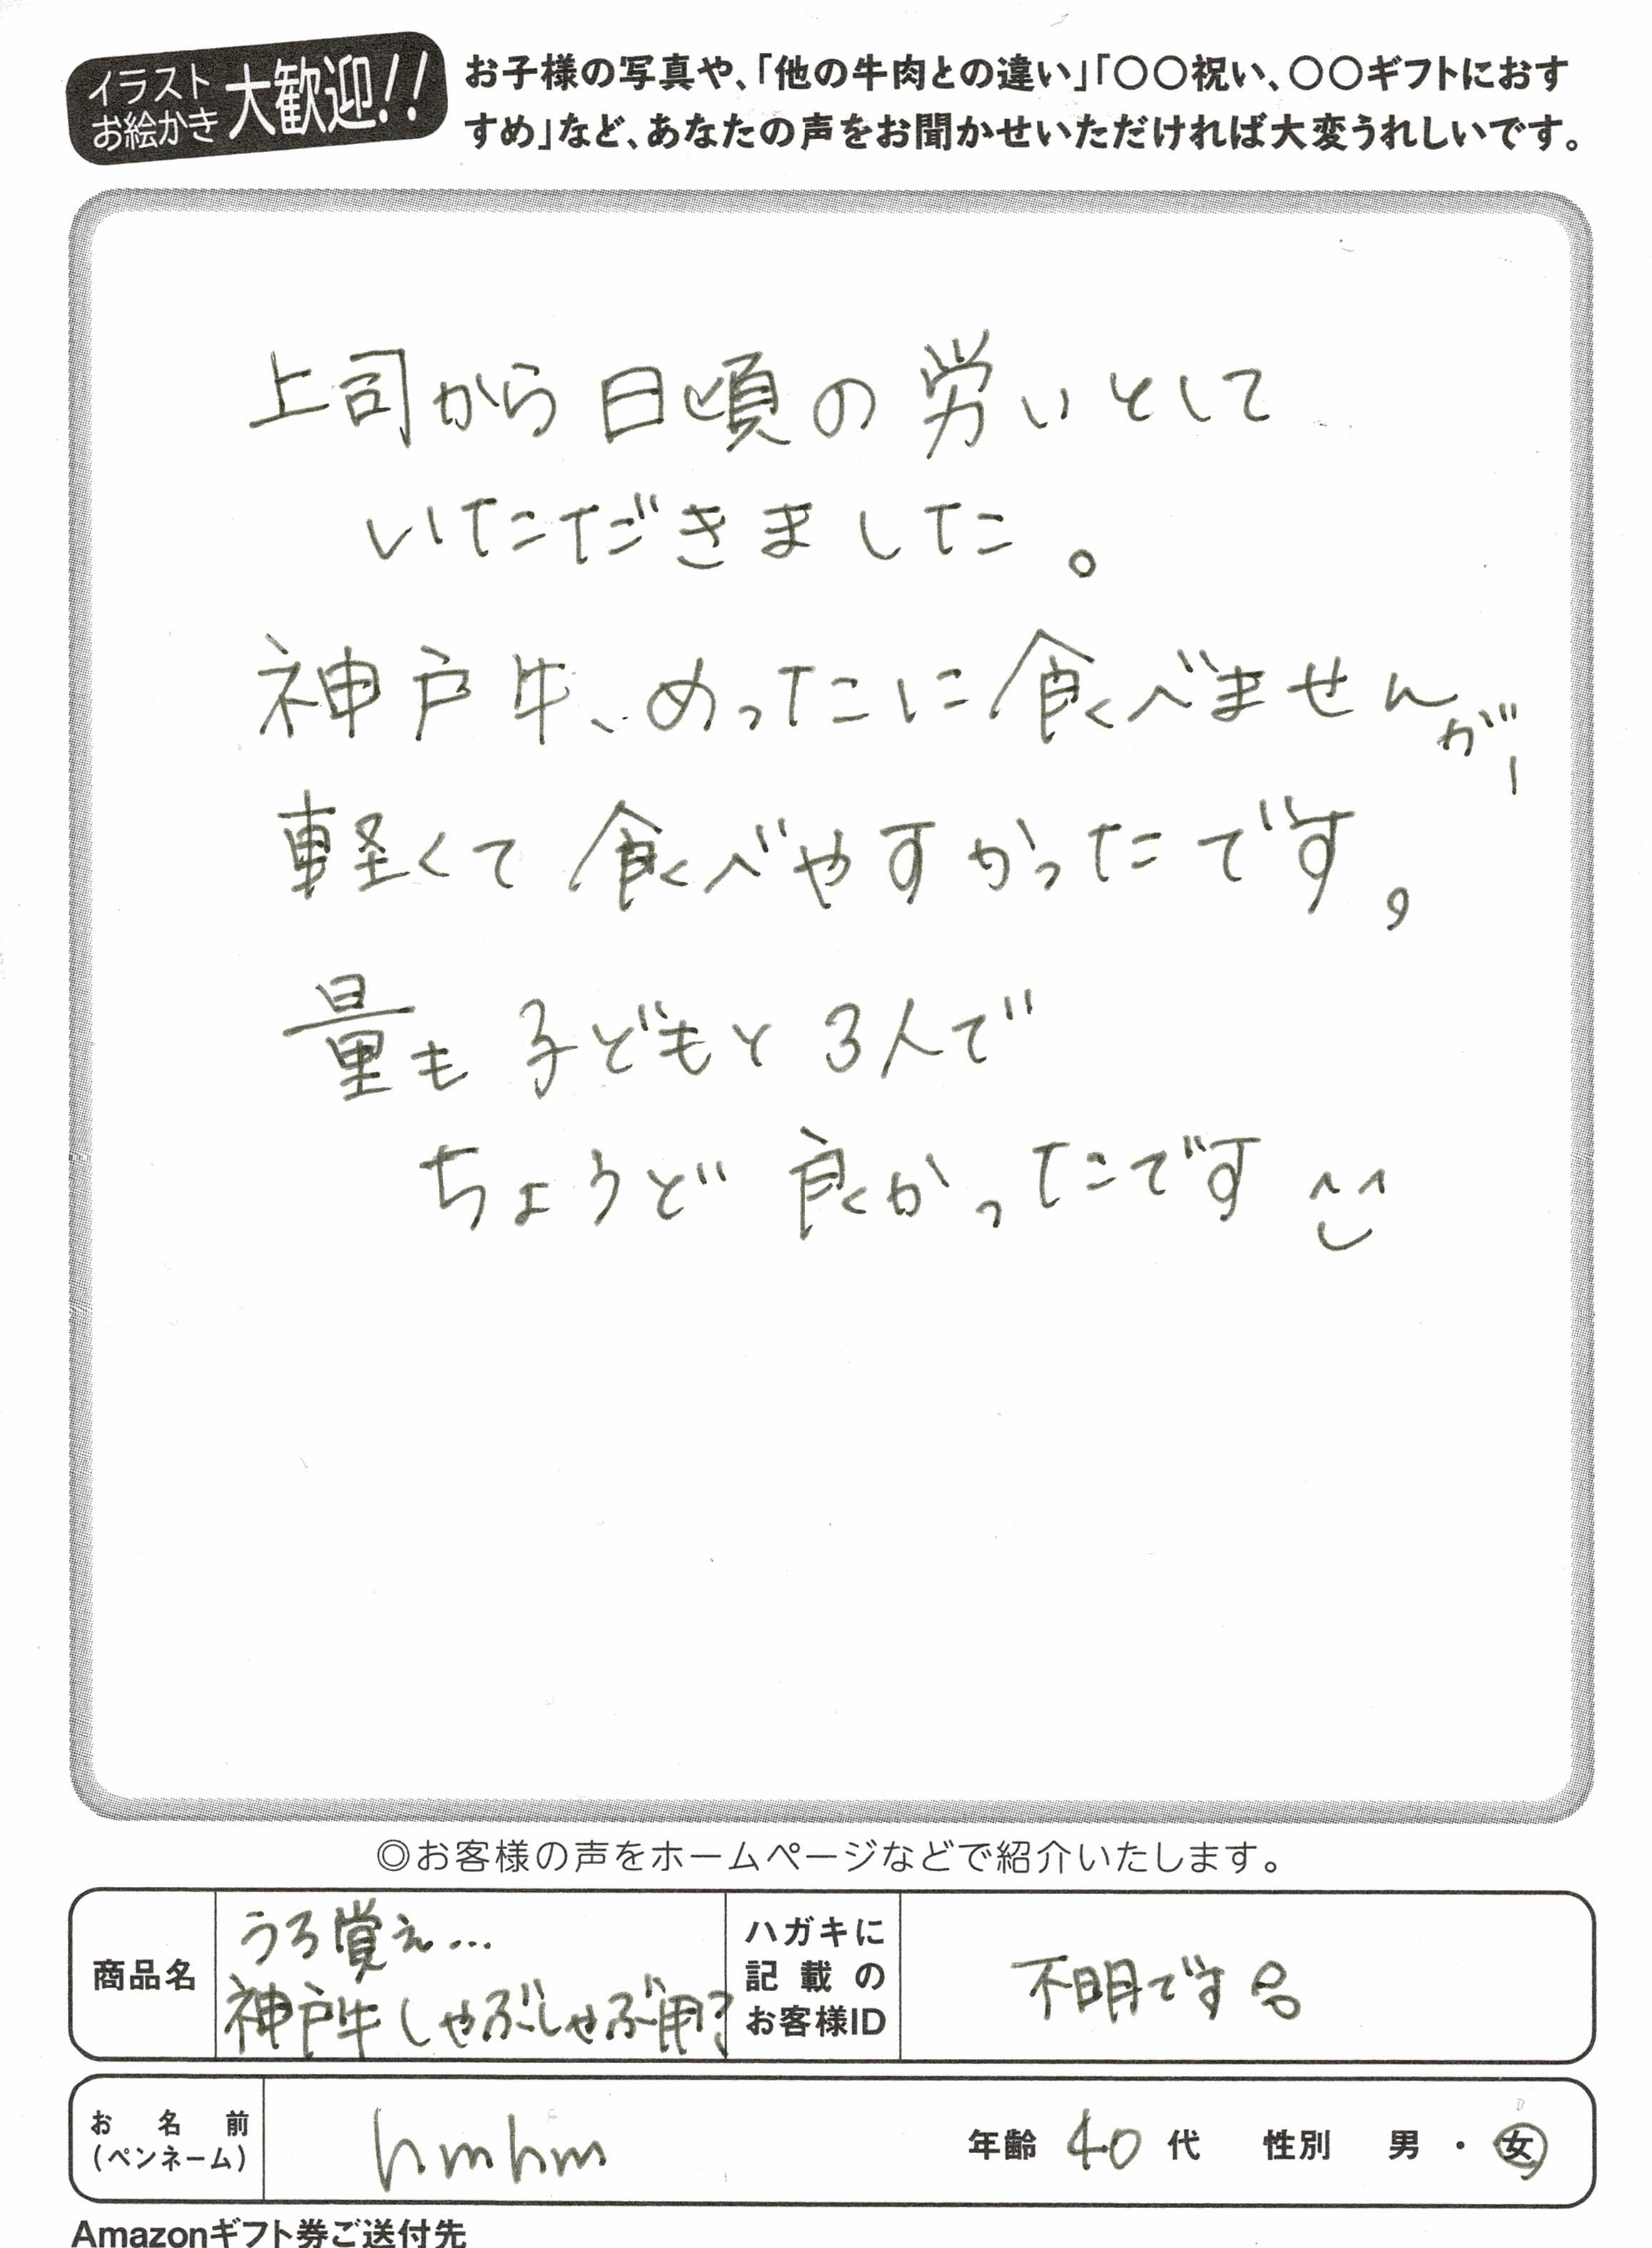 イラスト
お絵かき
大歓迎!!
お子様の写真や、「他の牛肉との違い」「〇〇祝い、〇〇ギフトにおす
すめ」など、あなたの声をお聞かせいただければ大変うれしいです。
上司から日頃の労いとして
いただきました。
神戸牛、めったに食べませんがー
軽くて食べやすかったです。
量も子どもと3人で
ちょうど良かったです
◎お客様の声をホームページなどで紹介いたします。
商品名
うろ覚え...
神戸牛しゃぶしゃぶ用?
ハガキに
記載の
お客様ID
不明です
お名前
(ペンネーム)
hmhm
年齢 40 代 性別 男・女
Amazonギフト券ご送付先